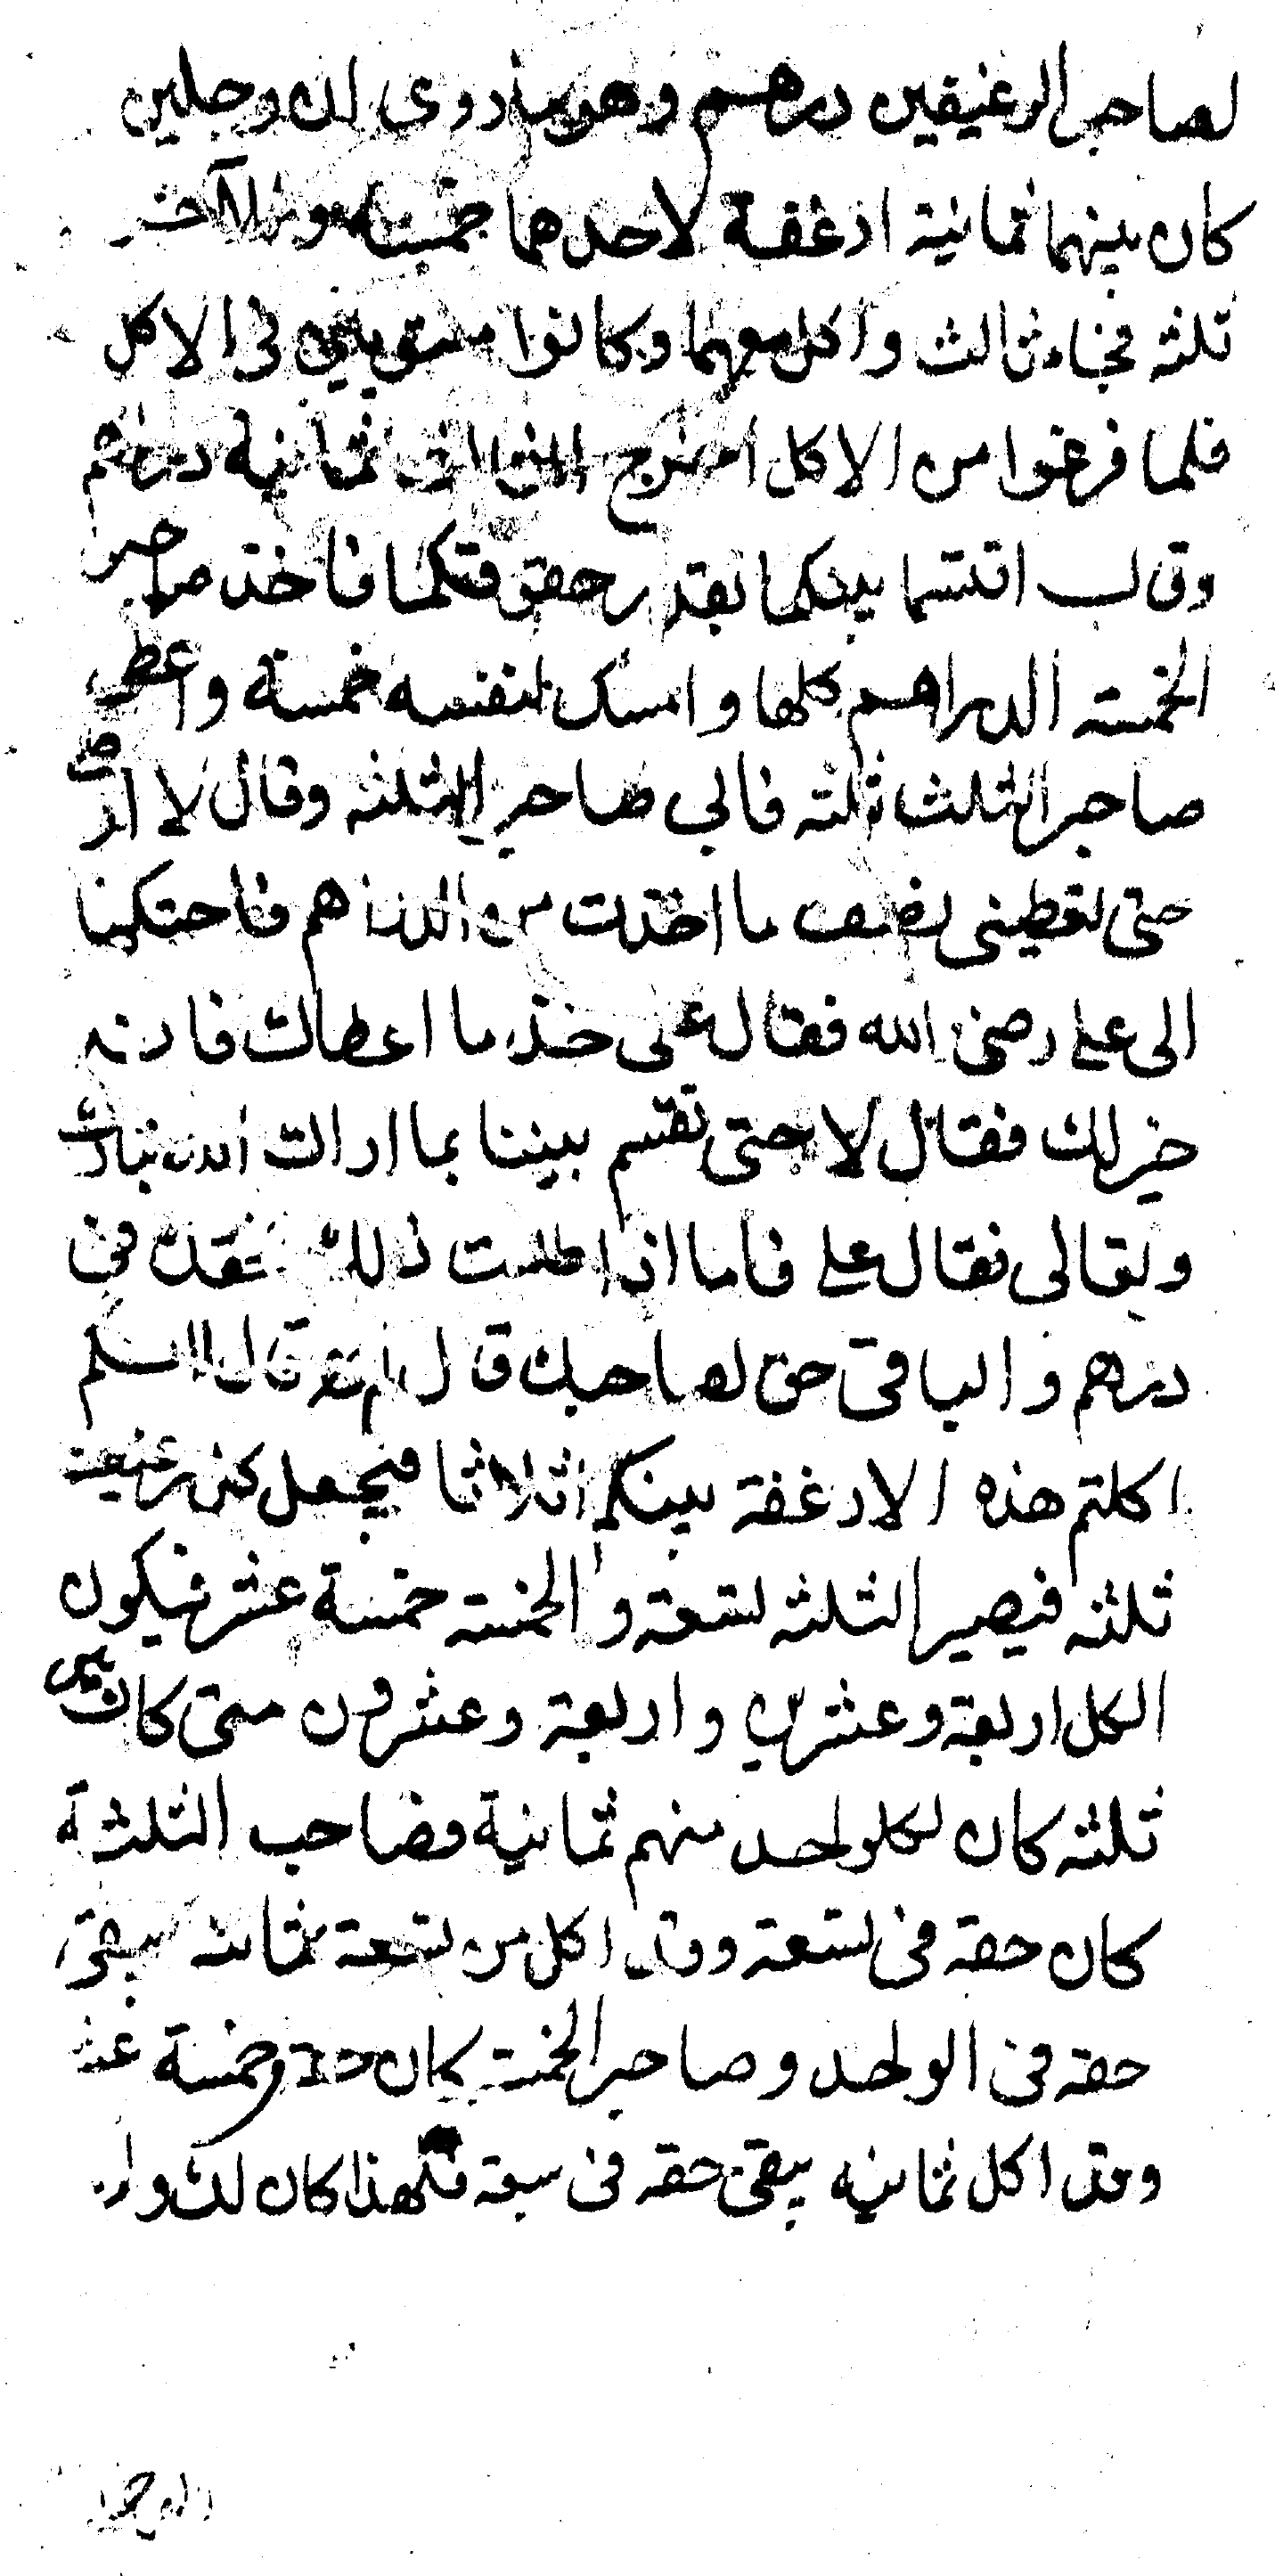 لصاحب الرغيفين درهم وهو ما روى ان رجلين
كان بينهما ثمانية ارغفة لاحدهما خمسة وللآخر
ثلثه فجاء ثالث واكل معهما وكانوا مستويين فى الاكل
فلما فرغوا من الاكل اخرج الثالث ثمانية دراهم
وقال اقتسما بينكما بقدر حقوقكما فاخذ صاحب
الخمسة الدراهم كلها وامسك لنفسه خمسة واعطى
صاحب الثلث ثلثه فابى صاحب الثلثه وقال لا ارضى
حتى تعطينى نصف ما اخذت من الدراهم فاحتكما
الى على رضى الله فقال على خذ ما اعطاك فانه
خير لك فقال لا حتى تقسم بيننا بما اراك الله تبارك
وتعالى فقال على فاما اذا طلبت ذلك فحقك فى
درهم والباقى حق لصاحبك قال لم قال
اكلتم هذه الارغفة بينكم اثلاثا فيجعل كل رغيف
ثلثه فيصير الثلثه تسعة والخمسة خمسة عشر فيكون
الكل اربعة وعشرين واربعة وعشرون متى كان بين
ثلثه كان لكل واحد منهم ثمانية وصاحب الثلثة
كان حقه فى تسعة وقد اكل من تسعة ثمانيه يبقى
حقه فى الواحد وصاحب الخمسة كان حقه خمسة عشر
وقد اكل ثمانيه يبقى حقه فى سبعة فلهذا كان لك